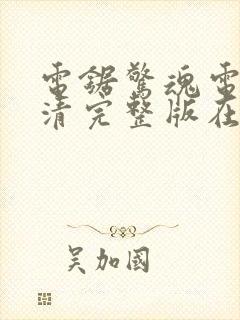 電鋸驚魂電
清完整版在
吴加國